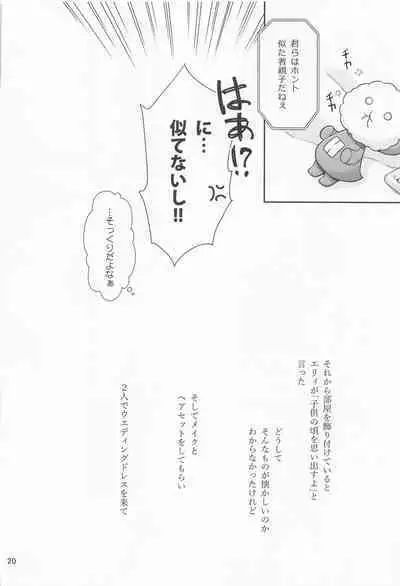 君らはホント
似た者親子だねぇ
はあ!?
に…
似てないし!!
…そっくりだよなぁ
それから部屋を飾り付けていると
エリィが「子供の頃を思い出すよ」と
言った
どうして
そんなものが懐かしいのか
わからなかったけれど
そしてメイクと
ヘアセットをしてもらい
2人でウエディングドレスを来て
20